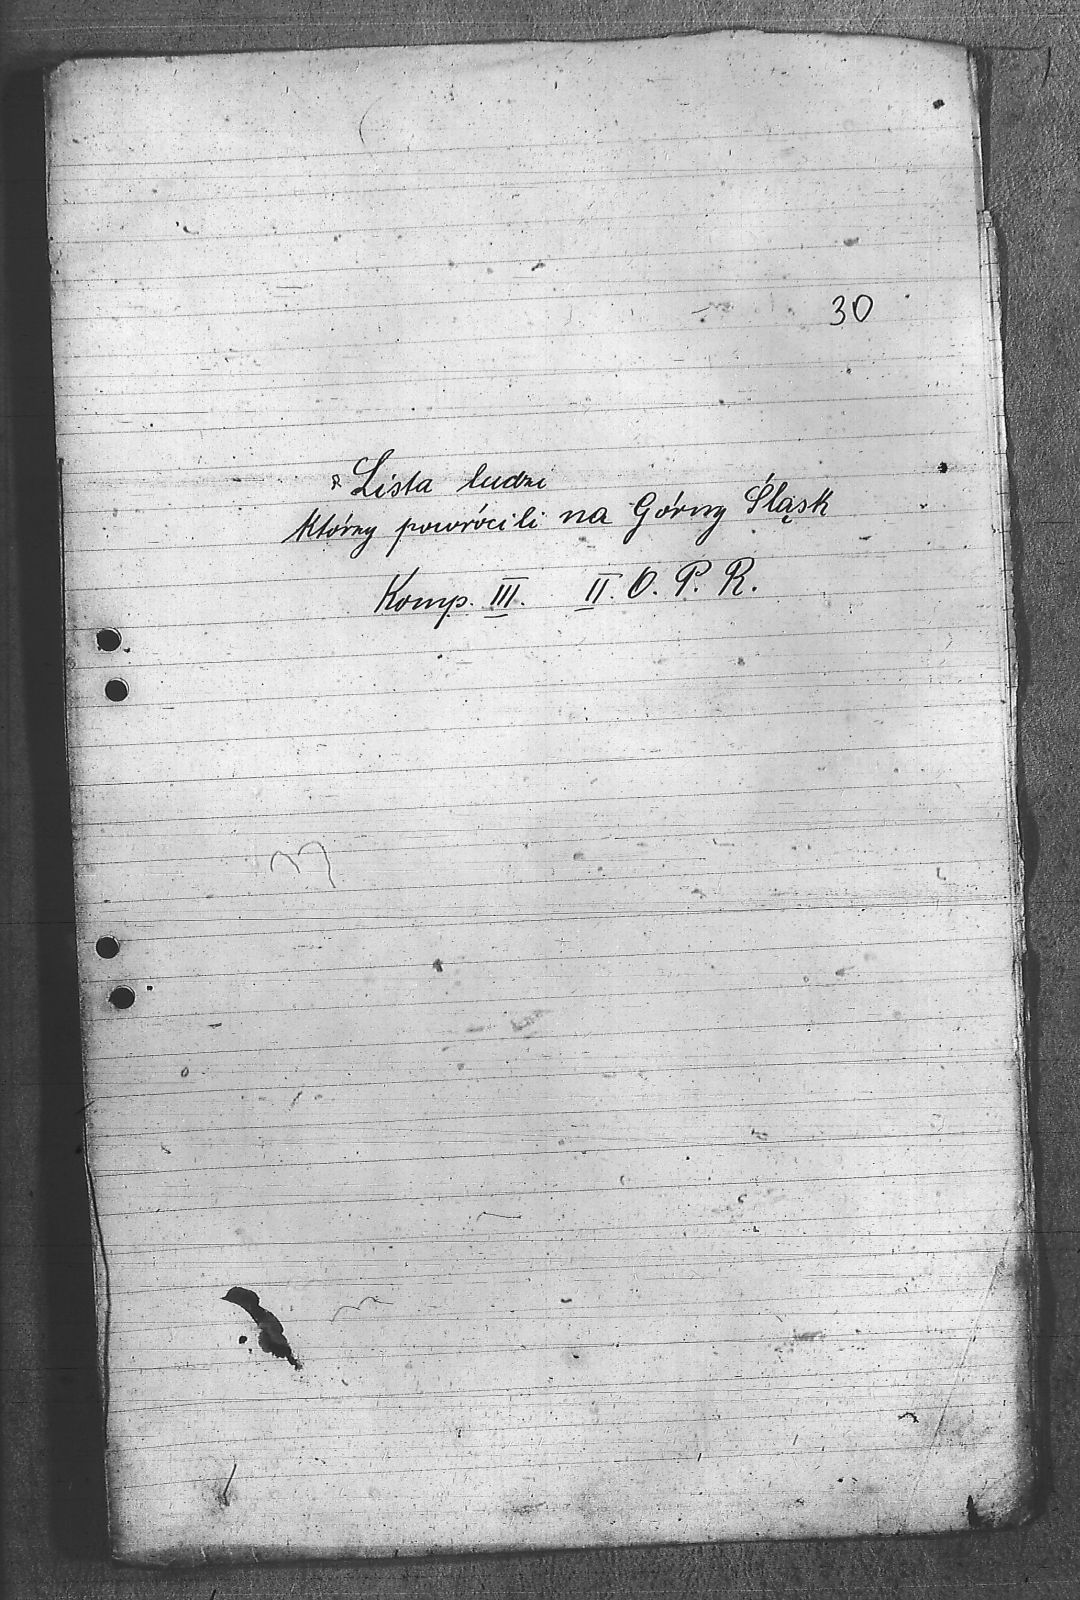 30
Lista ludzi
którzy powrócili na Górny Śląsk
Komp. III. II. O. P. R.